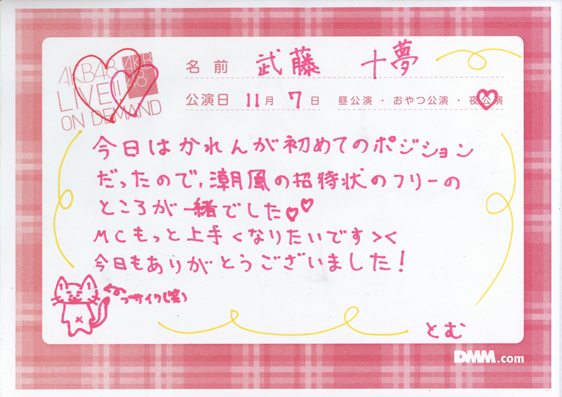 AKB48
LIVE!!
ON DEMAND
AKB
48
名前 武藤 十夢
公演日 11月7日 昼公演・おやつ公演・夜公演
今日はかれんが初めてのポジション
だったので、潮風の招待状のフリーの
ところが一緒でした♡♡
MCもっと上手くなりたいです><
今日もありがとうございました!
ブサイク(笑)
とむ
DMM.com